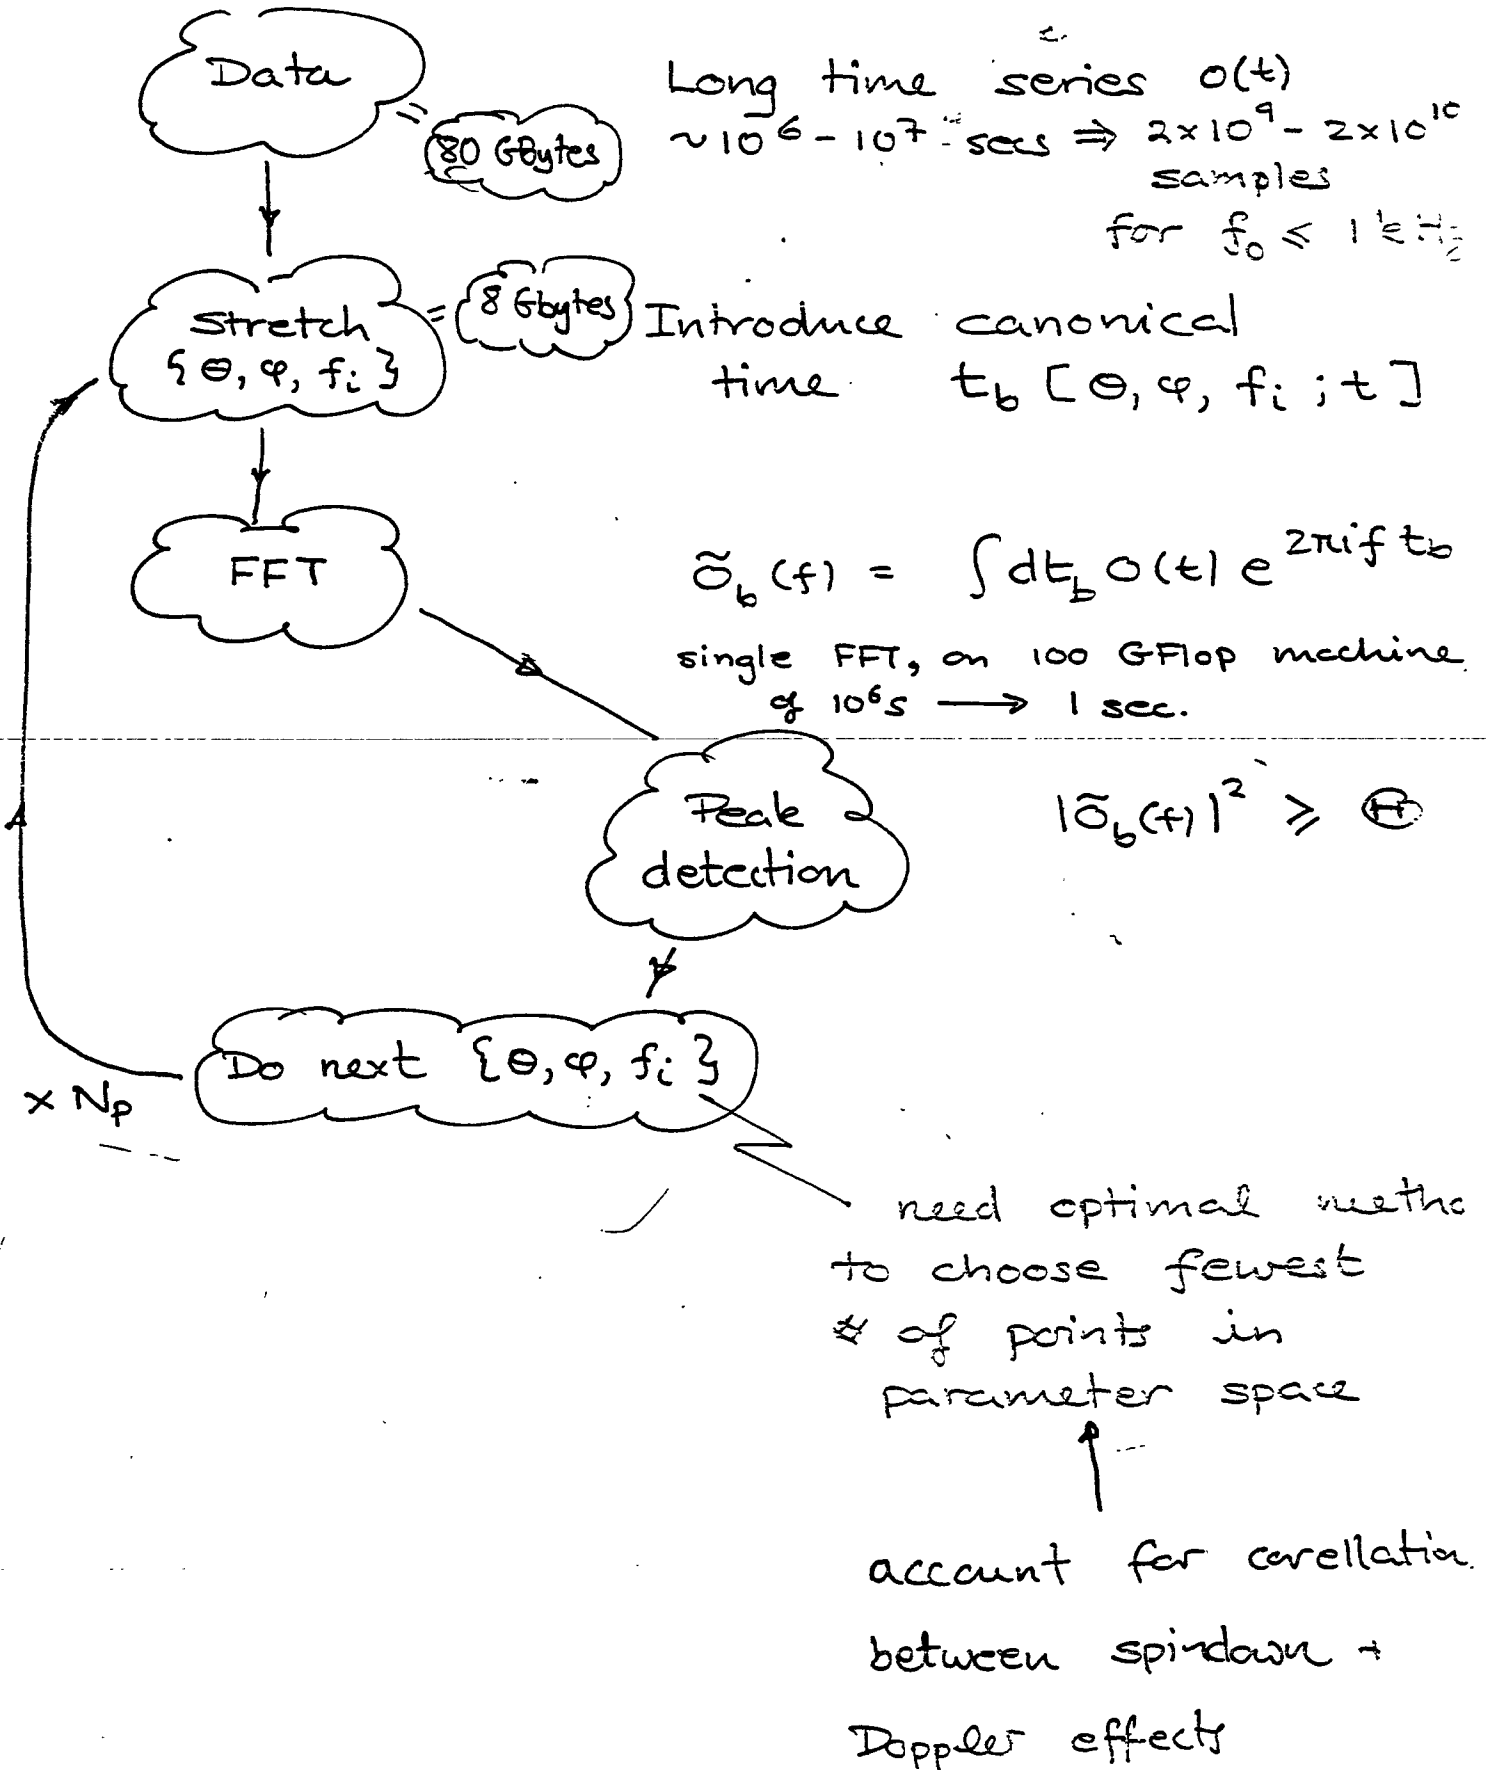 Data
80 GBytes
Long time series o(t)
~10^6 - 10^7 secs ⇒ 2×10^9 - 2×10^10
samples
for f_0 ≤ 1 kHz
Stretch
{θ, φ, f_i}
8 Gbytes
Introduce canonical
time t_b [θ, φ, f_i ; t]
FFT
õ_b(f) = ∫dt_b o(t) e^{2πif t_b}
single FFT, on 100 GFlop machine
of 10^6 s → 1 sec.
Peak
detection
|õ_b(f)|^2 ≥ Θ
Do next {θ, φ, f_i}
× N_p
need optimal metho
to choose fewest
# of points in
parameter space
account for corellation
between spindown +
Doppler effects